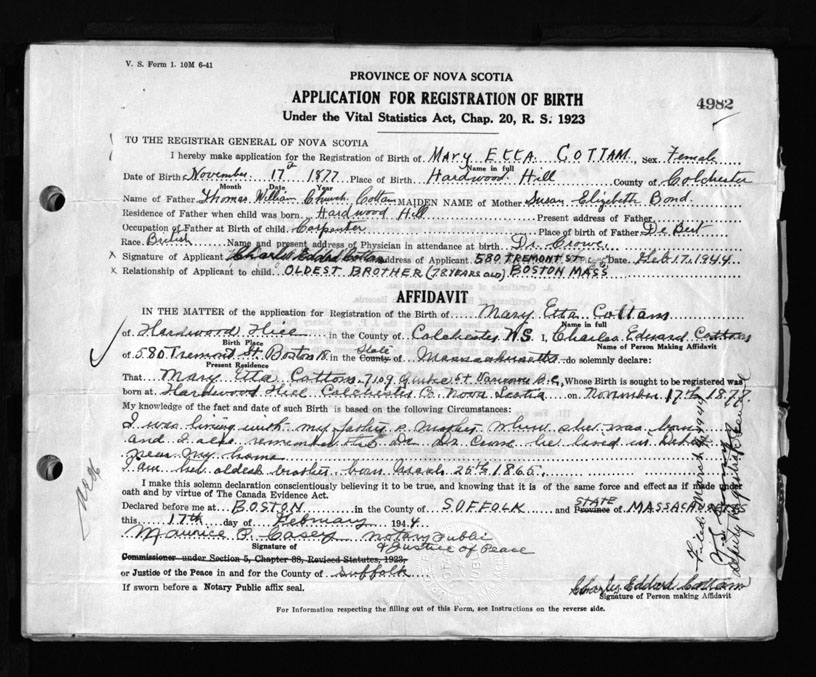 V. S. Form 1. 10M 6-41
PROVINCE OF NOVA SCOTIA
APPLICATION FOR REGISTRATION OF BIRTH
4982
Under the Vital Statistics Act, Chap. 20, R. S. 1923
TO THE REGISTRAR GENERAL OF NOVA SCOTIA
I hereby make application for the Registration of Birth of MARY ETTA COTTAM Sex Female
Name in full
Date of Birth November 17th 1877 Place of Birth Hardwood Hill County of Colchester
Month Date Year
Name of Father Thomas William Church Cottam MAIDEN NAME of Mother Susan Elizbeth Bond
Residence of Father when child was born Hardwood Hill Present address of Father
Occupation of Father at Birth of child Carpenter Place of birth of Father De Bert
Race British Name and present address of Physician in attendance at birth Dr. Crowe
x Signature of Applicant Charles Eddard Cottam address of Applicant 580 TREMONT ST Date Feb. 17. 1944
x Relationship of Applicant to child OLDEST BROTHER (78 YEARS OLD) BOSTON MASS
AFFIDAVIT
IN THE MATTER of the application for Registration of the Birth of Mary Etta Cottam
Name in full
of Hardwood Hill in the County of Colchester N.S. I, Charles Edward Cottam
Birth Place Name of Person Making Affidavit
of 580 Tremont St. Boston in the County State of Massachusetts do solemnly declare:
Present Residence
That Mary Etta Cottam St Vancouver B.C, Whose Birth is sought to be registered was
born at Hardwood Hill Colchester Co. Nova Scotia on November 17th 1877.
My knowledge of the fact and date of such Birth is based on the following Circumstances:
I was living with my father & Mother when she was born
and I also remember the Dr. Dr. Crowe he lived in Debert
near my home
I am her oldest brother born March 25th 1865.
I make this solemn declaration conscientiously believing it to be true, and knowing that it is of the same force and effect as if made under
oath and by virtue of The Canada Evidence Act.
Declared before me at BOSTON in the County of SUFFOLK and STATE Province of MASSACHUSETTS
this 17th day of February 1944
Maurice P. Casey Notary Public
& Justice of Peace
Signature of
Commissioner under Section 5, Chapter 88, Revised Statutes, 1923,
or Justice of the Peace in and for the County of Suffolk
If sworn before a Notary Public affix seal.
Charles Eddard Cottam
Signature of Person making Affidavit
For Information respecting the filling out of this Form, see Instructions on the reverse side.
Filed March 1944
Deputy Registrar General